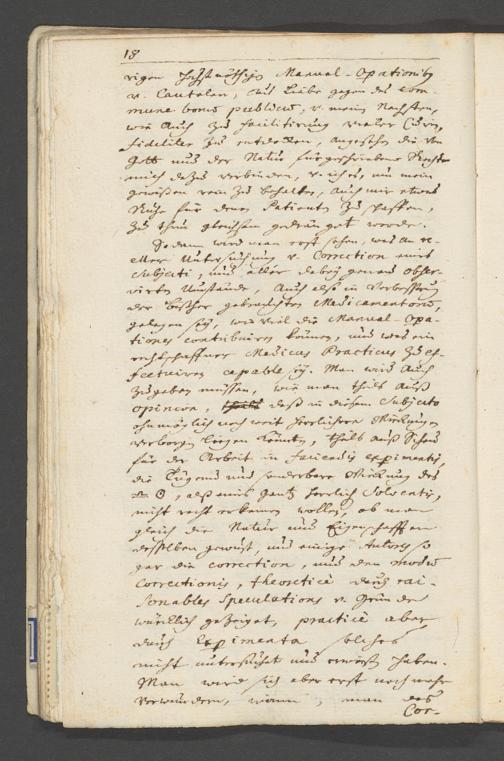 18
rigen höchstnöthigen Manual-Opationibg
v. Cautelen, aus Liebe gegen das com-
mune bonū publicū, v. mein Nächsten,
wie auch zu facilitirung vieler Curen,
fideliter zu entdecken, angesehen die von
Gott und der Natur fürgeschriebene Rechte
mich dazu verbinden, v. ich es, um mein
gewißen rein zu behalten, auch mir etwas
Ruhe für denen Patienten zu schaffen,
zu thun gleichsam gedrungen werde.
Sodann wird man erst sehen, was an re-
eller Untersuchung v. Correction eines
Subjecti, und aller dabey genau obser-
virten Umstände, auch also in Verbeßerung
der bißher gebrauchten Medicamentorū,
gelegen sey, wie viel die Manual-Opa-
tiones contribuiren können, und was ein
rechtschaffener Medicus Practicus zu ef-
fectuiren capable sey. Man wird auch
zugeben müssen, wie man theils auß
opinion, daß in diesem Subjecto
ohnmöglich noch weit herrlichere Wirkungen
verborgen liegen könten, theils auß Scheu
für der Arbeit in faciendis expimentis,
die Tugend und sonderbare Wirkung des
, alß eines gantz herrlich Solventis,
nicht recht erkennen wollen, ob man
gleich die Natur und Eigenschafften
desselben gewust, und einige Autores so
gar die correction, und den modū
Correctionis, theoreticè durch rai-
sonables Speculations v. Gründe
würcklich gezeiget, practicè aber
durch Expimenta solches
nicht untersuchet und erweißt haben.
Man wird sich aber erst noch mehr
verwundern, wann, man des
Cor-